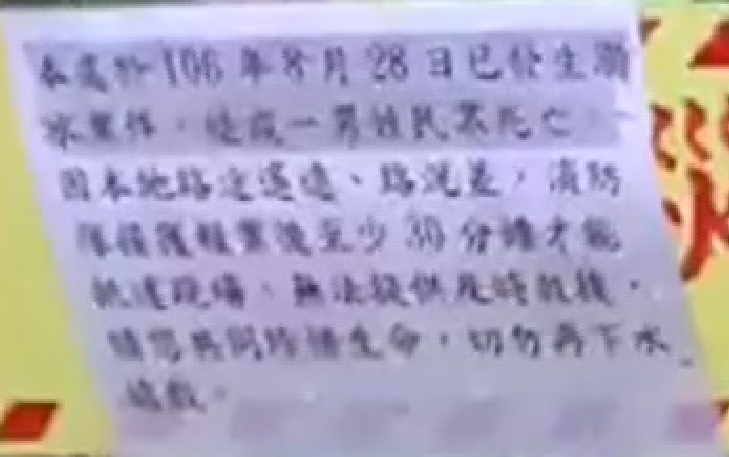 本處於106年8月28日已發生溺
水案件，造成一男性民眾死亡。
因本地路途遙遠、路況差，消防
隊獲報案後至少30分鐘才能
抵達現場，無法提供及時救援，
請您共同珍惜生命，切勿再下水
嬉戲。